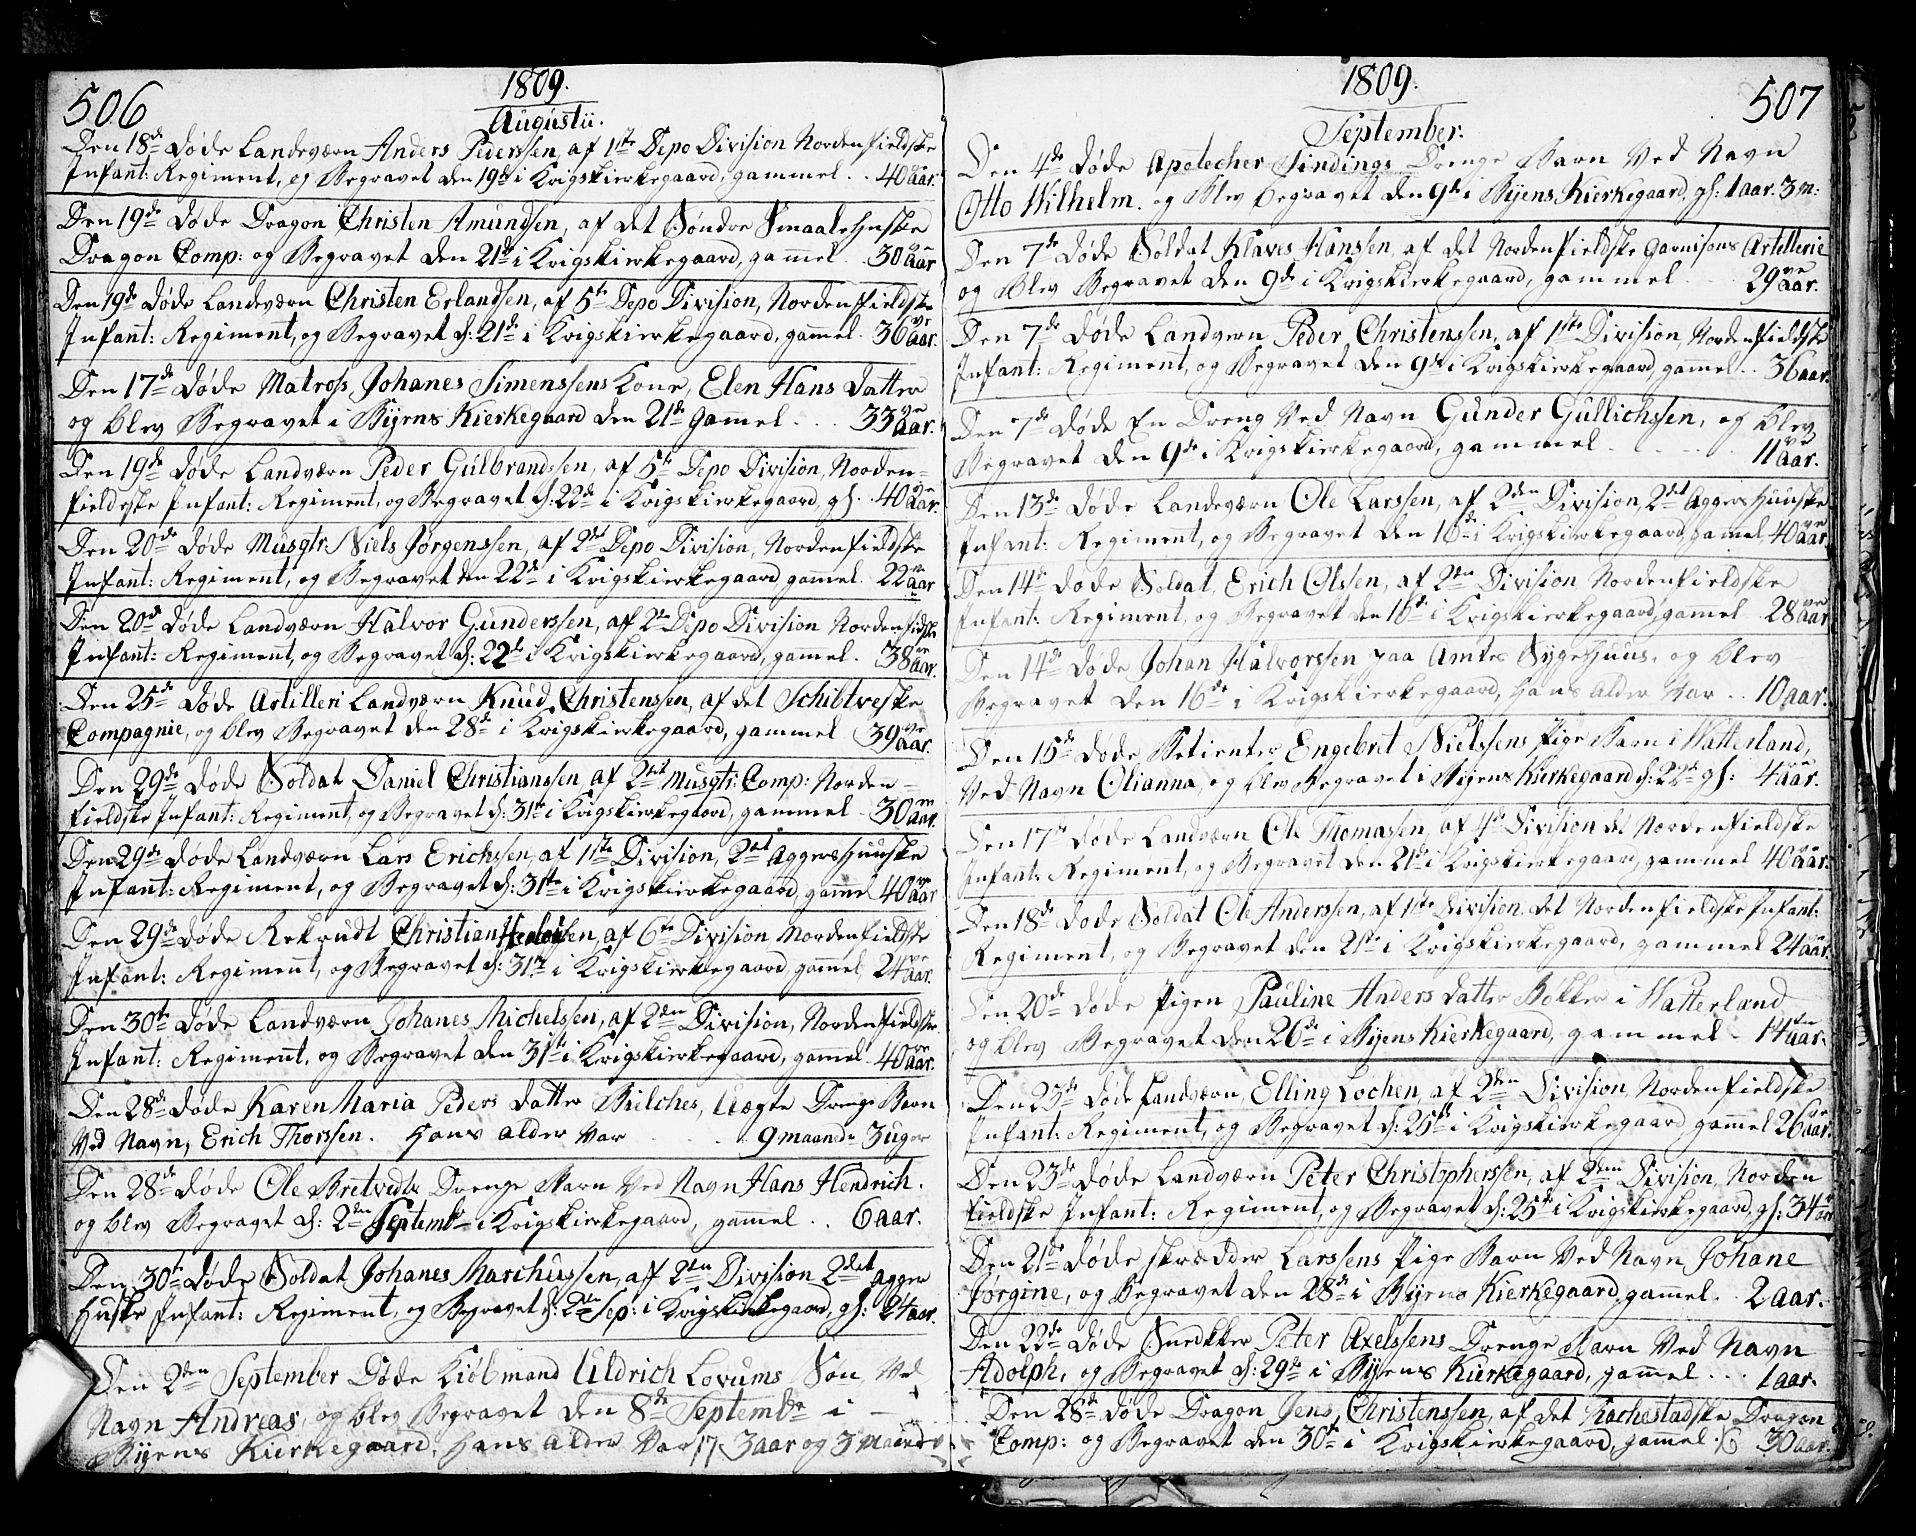 506
1809.
Augustii.
Den 18de døde Landeværn Anders Pederssen, af 1ste Depo Division Nordenfieldske
Infant: Regiment, og Begravet den 19de i Krigskierkegaard, gammel . . 40 aar.
Den 19de døde Dragon Christen Amundsen, af det Søndre Smaalehuske
Dragon Comp: og Begravet den 21de i Krigskierkegaard, gam̄el . . 30 aar
Den 19de døde Landeværn Christen Erlandsen, af 5te Depo Division, Nordenfieldske
Infant: Regiment, og Begravet d: 21de i Krigskierkegaard, gam̄el . 36 aar.
Den 17de døde Matros Johanes Simenssens Kone, Elen Hans datter
og blev Begravet i Byens Kierkegaard den 21de gam̄el . . . 33 aar.
Den 19de døde Landværn Peder Gulbrandssen, af 5te Depo Division, Norden=
fieldske Infant: Regiment, og Begravet d: 22de i Krigskierkegaard, gl. 40 aar.
Den 20de døde Musqtr: Niels Jørgenssen, af 2det Depo Division, Nordenfieldske
Infant: Regiment, og Begravet den 22de i Krigskierkegaard, gam̄el . 22 aar
Den 20de døde Landværn Halvor Gunderssen, af 2de Depo Division Nordenfieldske
Infant: Regiment, og Begravet d: 22de i Krigskierkegaard, gam̄el . 38 aar.
Den 25de døde Artilleri Landværn Knud Christenssen, af det Schibtvedske
Compagnie, og blev Begravet den 28de i Krigskierkegaard, gammel 39 aar.
Den 29de døde Soldat Daniel Christianssen af 2det Musqtr: Comp: Norden=
fieldske Infant: Regiment, og Begravet d: 31te i Krigskierkegaard, gammel . 30 aar.
Den 29de døde Landværn Lars Erichssen, af 1ste Division, 2det Aggershuuske
Infant: Regiment, og Begravet d: 31te i Krigskierkegaard, gam̄el 40 aar
Den 29de døde Rekrudt Christian af 6te Division Nordenfieldske
Infant: Regiment, og Begravet d: 31te i Krigskierkegaard, gam̄el 24 aar.
Den 30te døde Landværn Johanes Michelssen, af 2den Division, Nordenfieldske
Infant: Regiment, og Begravet den 31te i Krigskierkegaard, gam̄el . 40 aar.
Den 28de døde Karen Maria Peders datter Bielches, Uægte Drenge Barn
Ved Navn, Erich Thorssen. Hans alder Var . . . 9 maand: 3 uger
Den 28de døde Ole Bretvedts Drenge Barn Ved Navn Hans Hendrich.
og blev Begravet d: 2den Septembr i Krigskierkegaard, gam̄el . . 6 aar.
Den 30te døde Soldat Johanes Marchussen, af 2den Division 2det Agger
Huske Infant: Regiment, og Begravet d: 2den Sep: i Krigskierkegaard, gl: 24 aar.
Den 2den September Døde Kiøbmand Uldrich Lorums Søn Ved
Navn Andreas, og blev Begravet den 8de Septembr i —
Byens Kierkegaard, Hans Alder Var 3 aar og 3 Maander
1809.
507
September.
Den 4de døde Apotecher Sindings Drenge Barn Ved Navn
Otto Wilhelm. og Blev begravet den 9de i Byens Kierkegaard, gl: 1 aar. 3 m:
Den 7de døde Soldat Klaves Hanssen, af det Nordenfieldske Garnisons Artillerie
og blev Begravet den 9de i Krigskierkegaard, gammel . . 29 aar.
Den 7de døde Landværn Peder Christenssen, af 1ste Division Nordenfieldske
Infant: Regiment, og Begravet den 9de i Krigskierkegaard, gam̄el . . 36 aar.
Den 7de døde En Dreng Ved Navn Gunder Gullichssen, og blev
Begravet den 9de i Krigskierkegaard, gammel . . . . . 11 aar.
Den 13de døde Landeværn Ole Larssen, af 2den Division, 2det Aggershuuske
Infant: Regiment, og Begravet den 16de i Krigskierkegaard gamel 40 aar.
Den 14de døde Soldat Erich Olssen, af 2den Division Nordenfieldske
Infant: Regiment, og Begravet den 16de i Krigskierkegaard, gamel . 28 aar
Den 14de døde Johan Halvorssen paa Amtes Sygehuus, og blev
Begravet den 16de i Krigskierkegaard, Hans alder Var . . 10 aar.
Den 15de døde Betienter Engebret Nielssens Pige Barn i Vatterland,
Ved Navn Olianna, og blev Begravet i Byens Kierkegaard d: 22de gl: 4 aar.
Den 17de døde Landværn Ole Thomasen, af 4de Division det Nordenfieldske
Infant: Regiment, og Begravet den 21de i Krigskierkegaard, gammel 40 aar.
Den 18de døde Soldat Ole Anderssen, af 1ste Division det Nordenfieldske Infant:
Regiment, og Begravet den 21de i Krigskierkegaard, gammel 24 aar.
Den 20de døde Pigen Pauline Anders datter Bekker i Vatterland
og blev Begravet den 26de i Byens Kierkegaard, gammel . 14 aar.
Den 23de døde Landværn, Elling Lochen, af 2den Division, Nordenfieldske
Infant: Regiment, og Begravet d: 25de i Krigskierkegaard, gam̄el 26 aar.
Den 23de døde Landværn Peter Christopherssen, af 2den Division, Norden
fieldske Infant: Regiment, og Begravet d: 25de i Krigskierkegaard, gl: 34 aar
Den 21de døde Skrædder Larssens Pige Barn Ved Navn Johane
Jørgine, og Begravet den 28de i Byens Kierkegaard gam̄el . 2 aar.
Den 22de døde Snedkker Peter Axelssens Drenge Barn Ved Navn
Adolph, og Begravet d: 29de i Byens Kierkegaard, gam̄el . . . 1 aar.
Den 28de døde Dragon Jens Christenssen, af det Rachestadske Dragon
Comp: og Begravet den 30te i Krigskierkegaard, gam̄el . 30 aar.